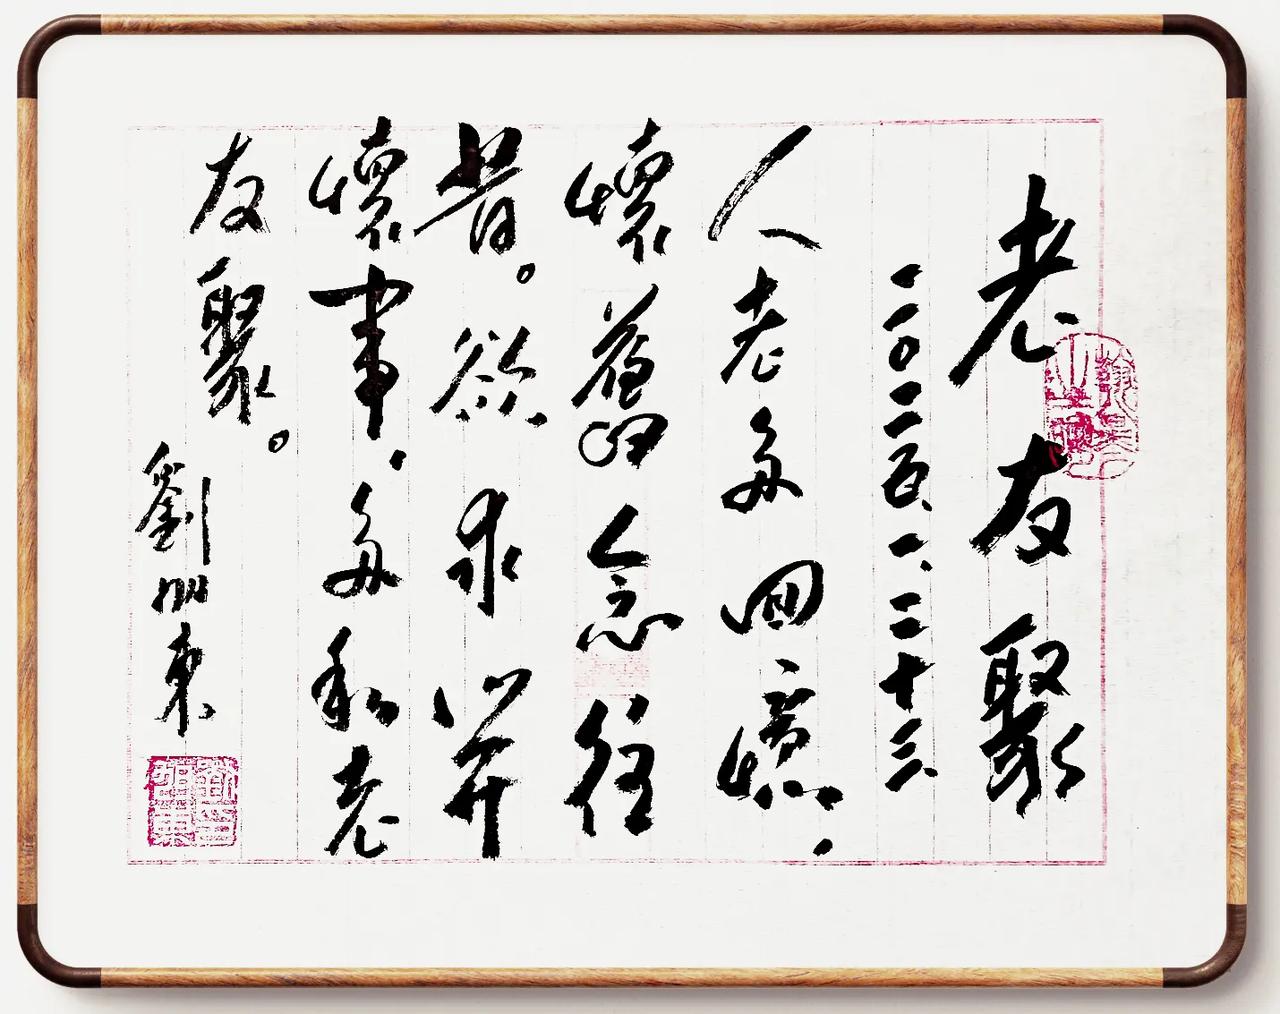 老友聚
二〇二五、一、二十三
人老多回憶，
懷舊念往
昔。欲求開
懷事，多和老
友聚。
劉東